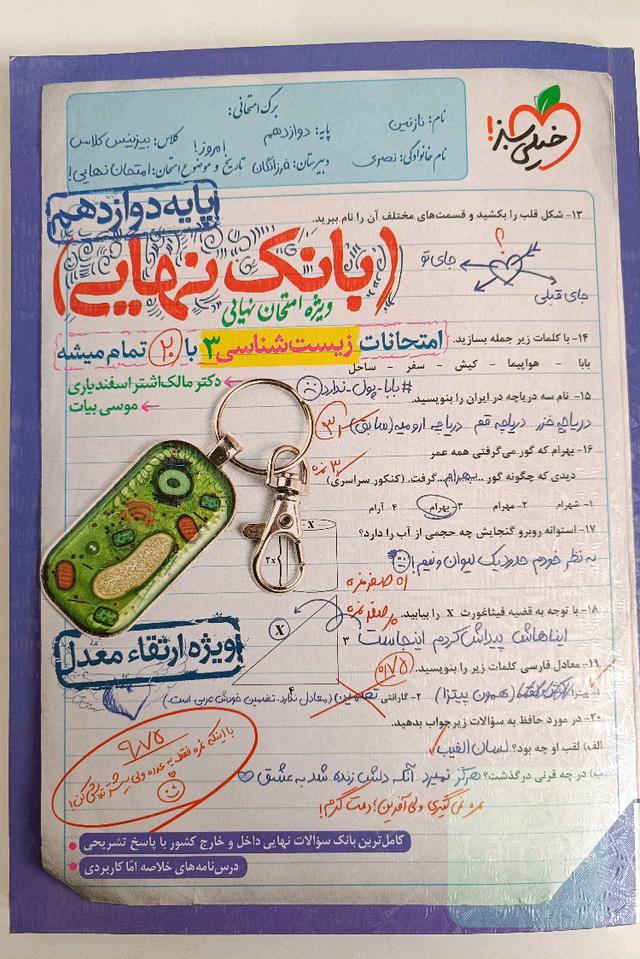 برگ امتحانی:
نام: نازنین
پایه: دوازدهم
کلاس: بیزینس کلاس
نام خانوادگی: نصری
دبیرستان: فرزانگان
امروز!
تاریخ و موضوع امتحان: امتحان نهایی!
خیلی سبز!
پایه دوازدهم
۱۳- شکل قلب را بکشید و قسمت‌های مختلف آن را نام ببرید.
(بانک نهایی)
؟
جای تو
جای قبلی
ویژه امتحان نهایی
امتحانات زیست‌شناسی ۳ با ۲۰ تمام میشه
۱۴- با کلمات زیر جمله بسازید.
بابا - هواپیما - کیش - سفر - ساحل
دکتر مالک‌اشتر اسفندیاری
موسی بیات
#بابا-پول-ندارد
۱۵- نام سه دریاچه در ایران را بنویسید.
دریاچه خزر دریاچه قم دریاچه ارومیه (سابق)
۱۶- بهرام که گور می‌گرفتی همه عمر
دیدی که چگونه گور ...بهرام... گرفت. (کنکور سراسری)
۳ نمره
۱- شهرام ۲- مهرام ۳- بهرام ۴- آرام
۱۷- استوانه روبرو گنجایش چه حجمی از آب را دارد؟
X
۲x
به نظر خودم حدود یک لیوان و نیم!
صفر نمره
۱۸- با توجه به قضیه فیثاغورث X را بیابید.
صفر نمره
X
۳
۴
ایناهاش پیداش کردم اینجاست
ویژه ارتقاء معدل
۱۹- معادل فارسی کلمات زیر را بنویسید.
۰/۷۵
۱- پیتزا (همون پیتزا) ۲- گارانتی تضمین (معادل ندارد. تضمین خودش عربی است.)
۲۰- در مورد حافظ به سؤالات زیر جواب بدهید.
الف) لقب او چه بود؟ لسان الغیب
ب) در چه قرنی درگذشت؟ هرگز نمیرد آنکه دلش زنده شد به عشق
نمره نمی‌گیری ولی آفرین؛ دمت گرم!
۹/۷۵
با اینکه نمره فقط یه عدده ولی بیشتر تلاش کن!
کامل‌ترین بانک سؤالات نهایی داخل و خارج کشور با پاسخ تشریحی
درس‌نامه‌های خلاصه امّا کاربردی